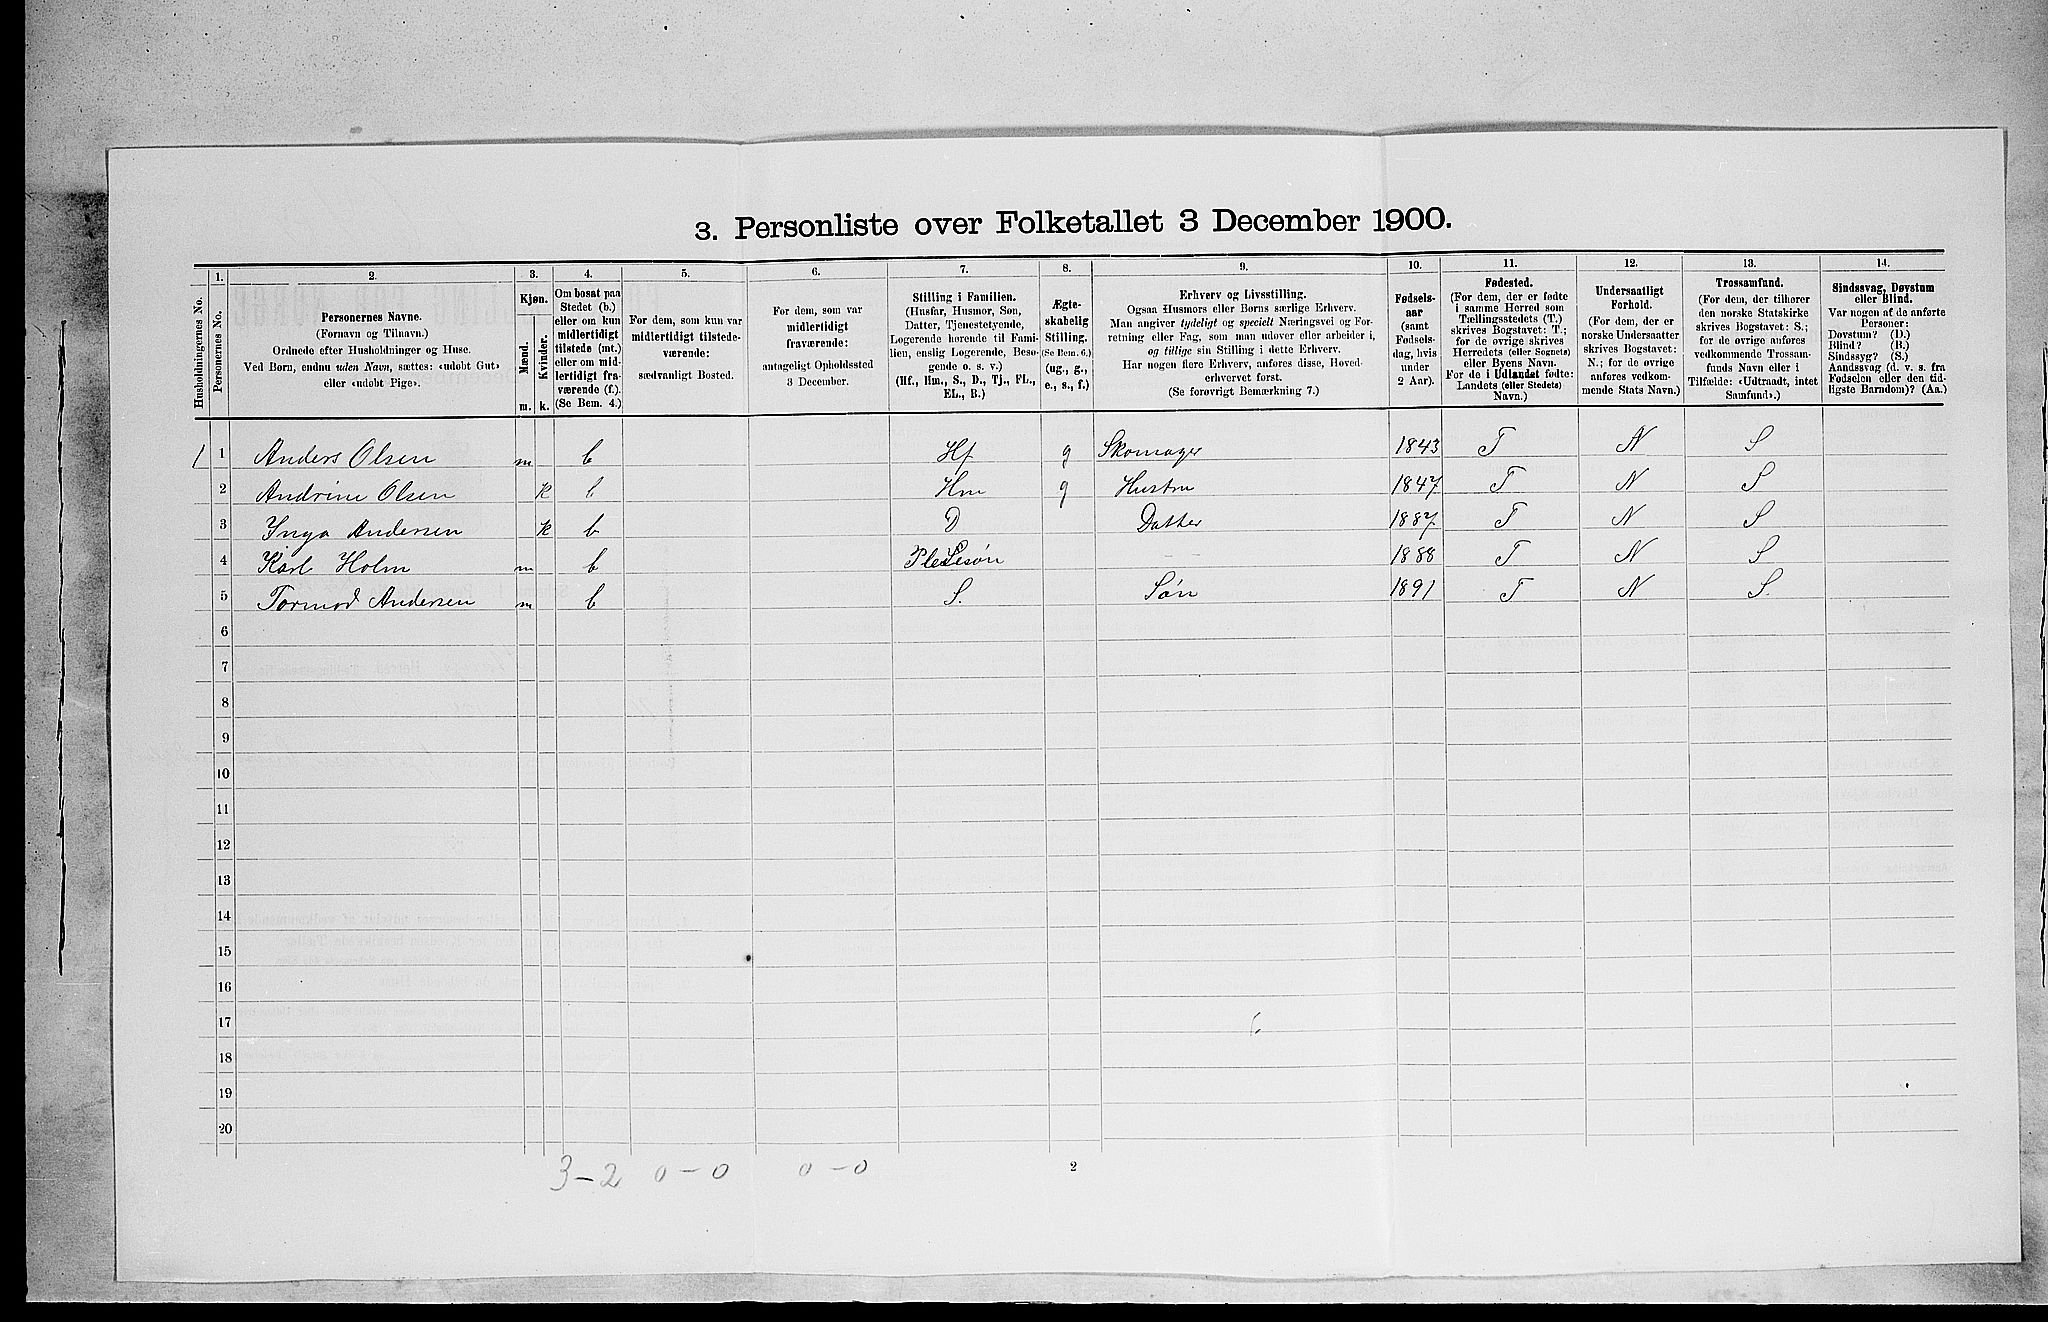 3. Personliste over Folketallet 3 December 1900.
1. 2. 3. 4. 5. 6. 7. 8. 9. 10. 11. 12. 13. 14.
Husholdningernes No.
Personernes No.
Personernes Navne.
(Fornavn og Tilnavn.)
Ordnede efter Husholdninger og Huse.
Ved Børn, endnu uden Navn, sættes: «udøbt Gut»
eller «udøbt Pige».
Kjøn.
Mænd.
Kvinder.
m. k.
Om bosat paa
Stedet (b.)
eller om kun
midlertidigt
tilstede (mt.)
eller om mid-
lertidigt fra-
værende (f.).
(Se Bem. 4.)
For dem, som kun var
midlertidigt tilstede-
værende:
sædvanligt Bosted.
For dem, som var
midlertidigt
fraværende:
antageligt Opholdssted
3 December.
Stilling i Familien.
(Husfar, Husmor, Søn,
Datter, Tjenestetyende,
Logerende hørende til Fami-
lien, enslig Logerende, Besø-
gende o. s. v.)
(Hf., Hm., S., D., Tj., FL.,
EL., B.)
Ægte-
skabelig
Stilling.
(Se Bem. 6.)
(ug., g.,
e., s., f.)
Erhverv og Livsstilling.
Ogsaa Husmors eller Børns særlige Erhverv.
Man angiver tydeligt og specielt Næringsvei og For-
retning eller Fag, som man udøver eller arbeider i,
og tillige sin Stilling i dette Erhverv.
Har nogen flere Erhverv, anføres disse, Hoved-
erhvervet først.
(Se forøvrigt Bemærkning 7.)
Fødsels-
aar
(samt
Fødsels-
dag, hvis
under
2 Aar).
Fødested.
(For dem, der er fødte
i samme Herred som
Tællingsstedets (T.)
skrives Bogstavet: T.;
for de øvrige skrives
Herredets (eller Sognets)
eller Byens Navn.
For de i Udlandet fødte:
Landets (eller Stedets)
Navn.)
Undersaatligt
Forhold.
(For dem, der er
norske Undersaatter
skrives Bogstavet:
N.; for de øvrige
anføres vedkom-
mende Stats Navn.)
Trossamfund.
(For dem, der tilhører
den norske Statskirke
skrives Bogstavet: S.;
for de øvrige anføres
vedkommende Trossam-
funds Navn eller i
Tilfælde: «Udtraadt, intet
Samfund».)
Sindssvag, Døvstum
eller Blind.
Var nogen af de anførte
Personer:
Døvstum? (D.)
Blind? (B.)
Sindssyg? (S.)
Aandssvag (d. v. s. fra
Fødselen eller den tid-
ligste Barndom)? (Aa.)
1 1 Anders Olsen m b Hf g Skomager 1843 T N S
2 Andrine Olsen k b Hm g Hustru 1847 T N S
3 Inga Andersen k b D Datter 1887. T N S
4 Karl Holm m b Pleiesøn 1888 T N S
5 Tormod Andersen m b S. Søn 1891 T N S.
6
7
8
9
10
11
12
13
14
15
16
17
18
19
20
3-2 0-0 0-0 2